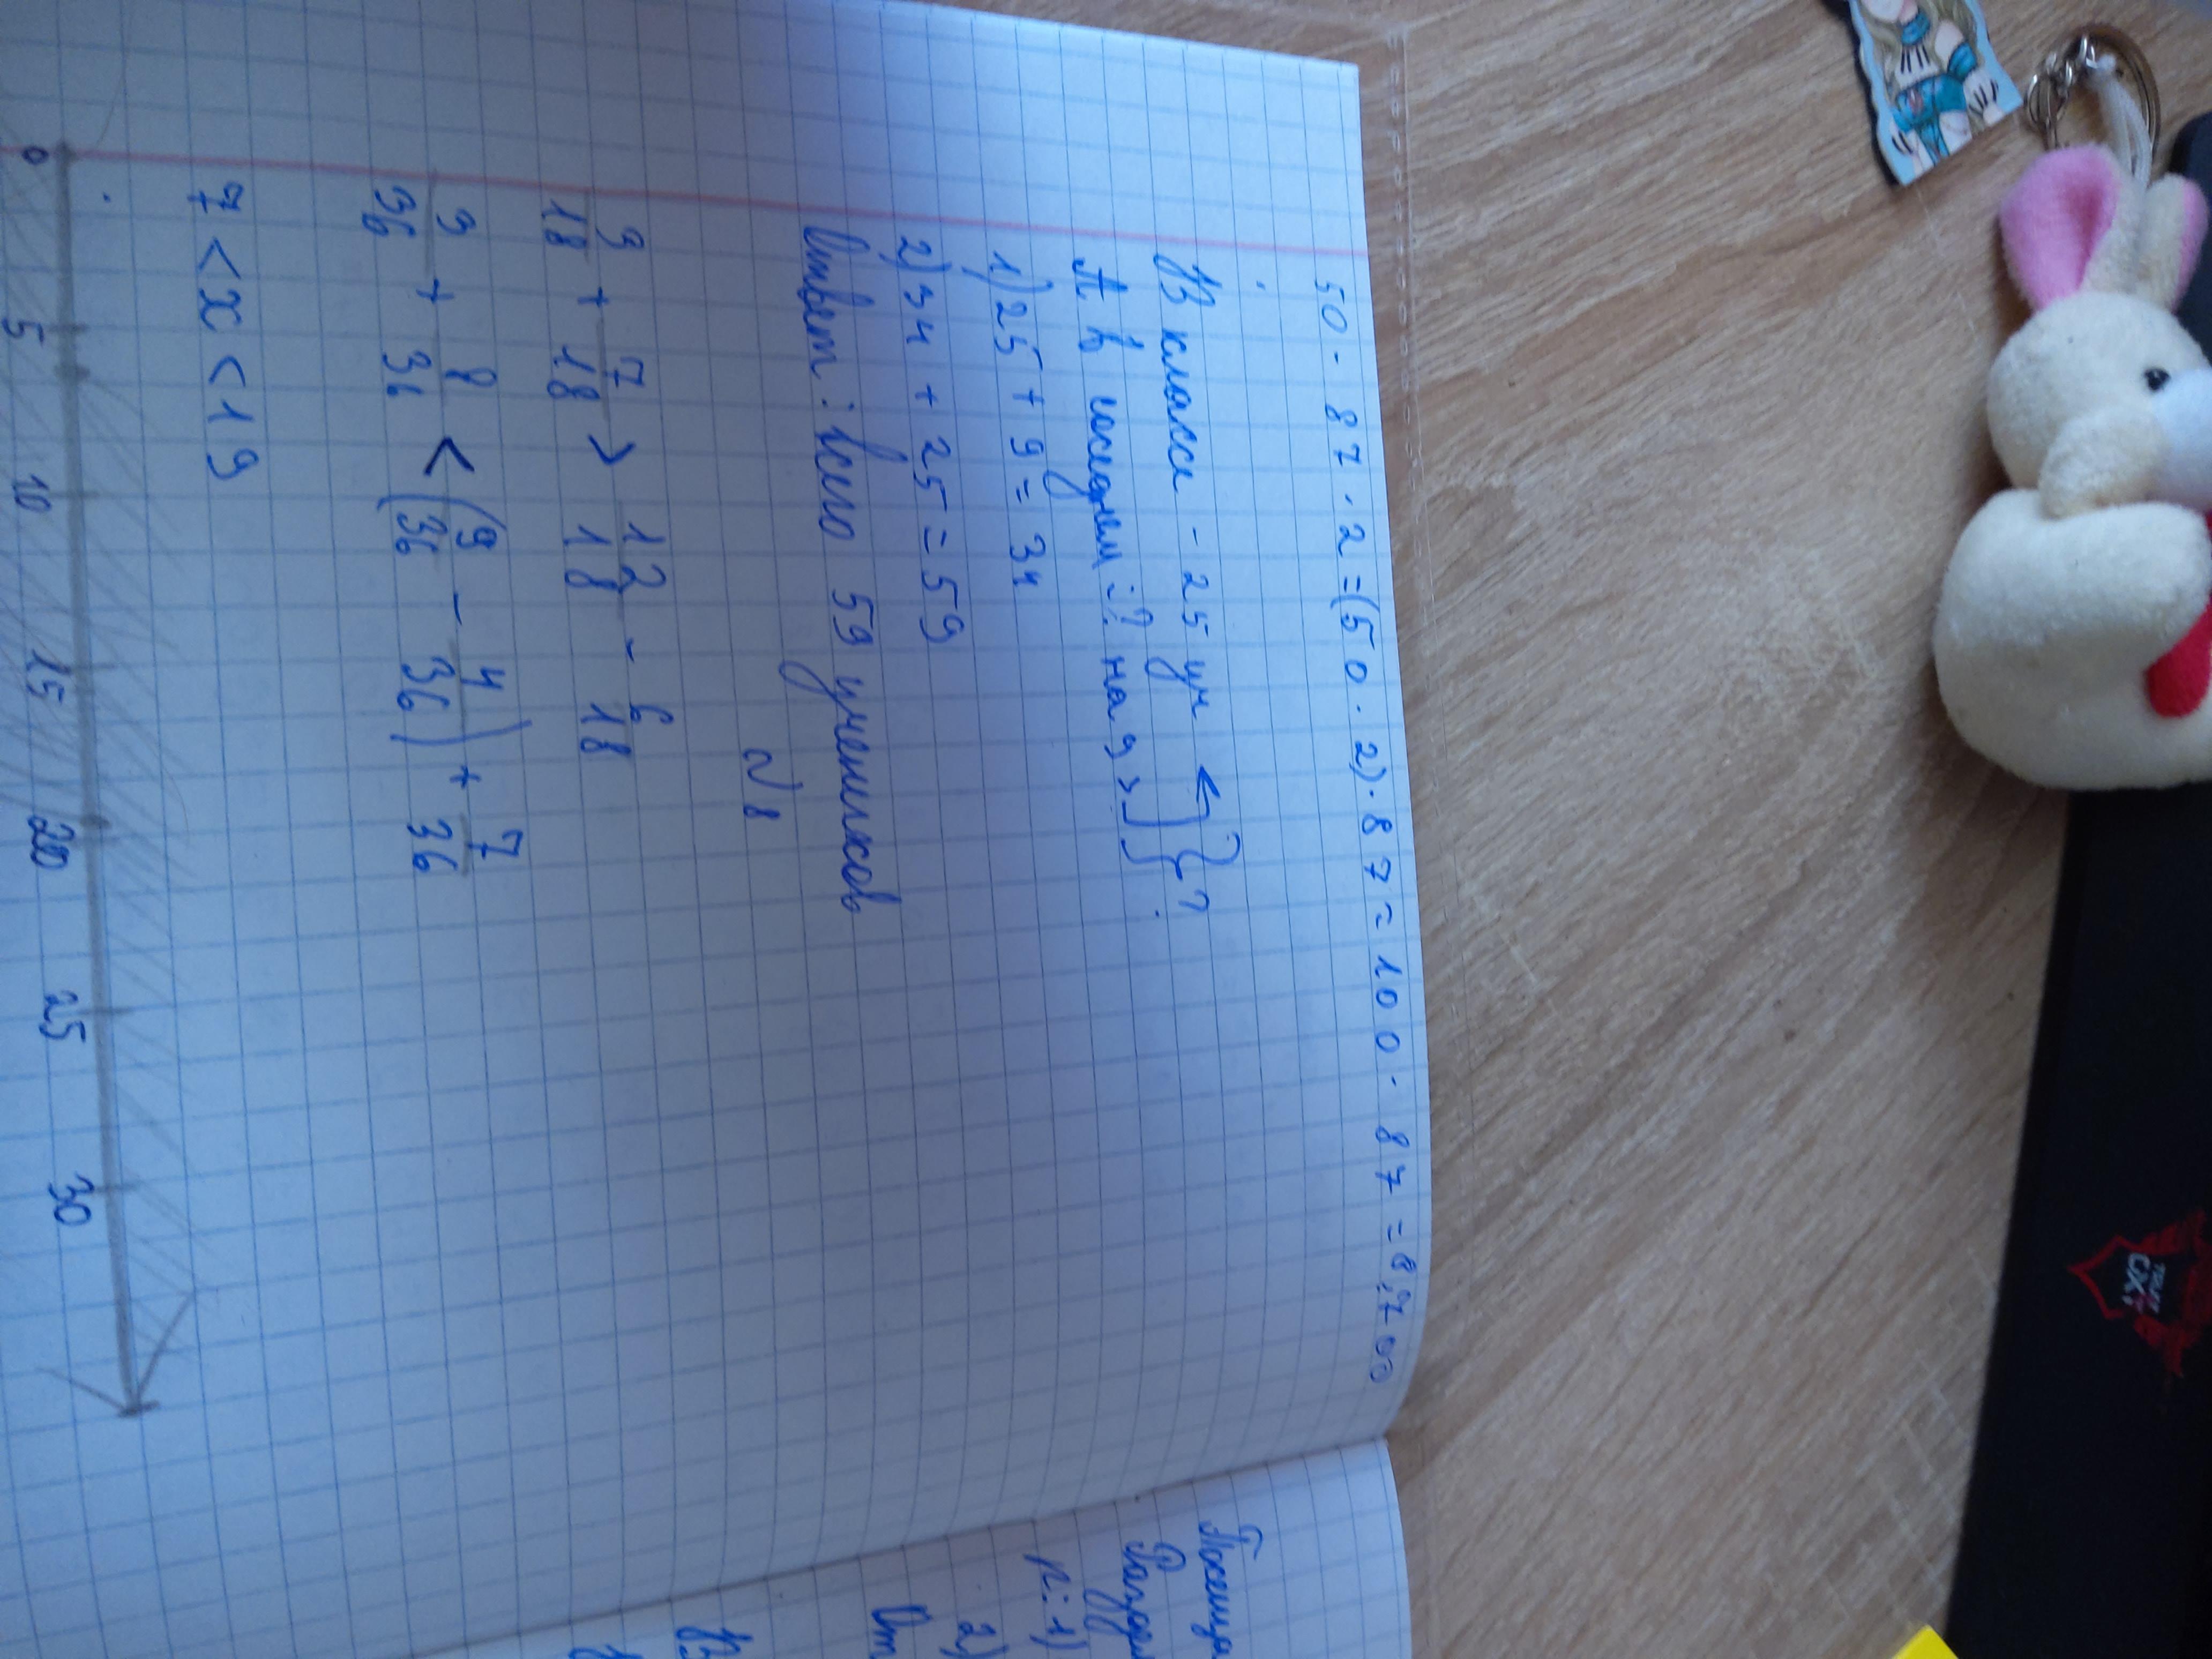 50 · 87 · 2 = (50 · 2) · 87 = 100 · 87 = 8700
В классе - 25 уч
А в соседнем - ? на 9 >
} ?
1) 25 + 9 = 34
2) 34 + 25 = 59
Ответ: всего 59 учеников
№ 8
9/18 + 7/18 > 12/18 - 6/18
9/36 + 8/36 < (9/36 - 4/36) + 7/36
7 < x < 19
0 5 10 15 20 25 30
1)
2)
От